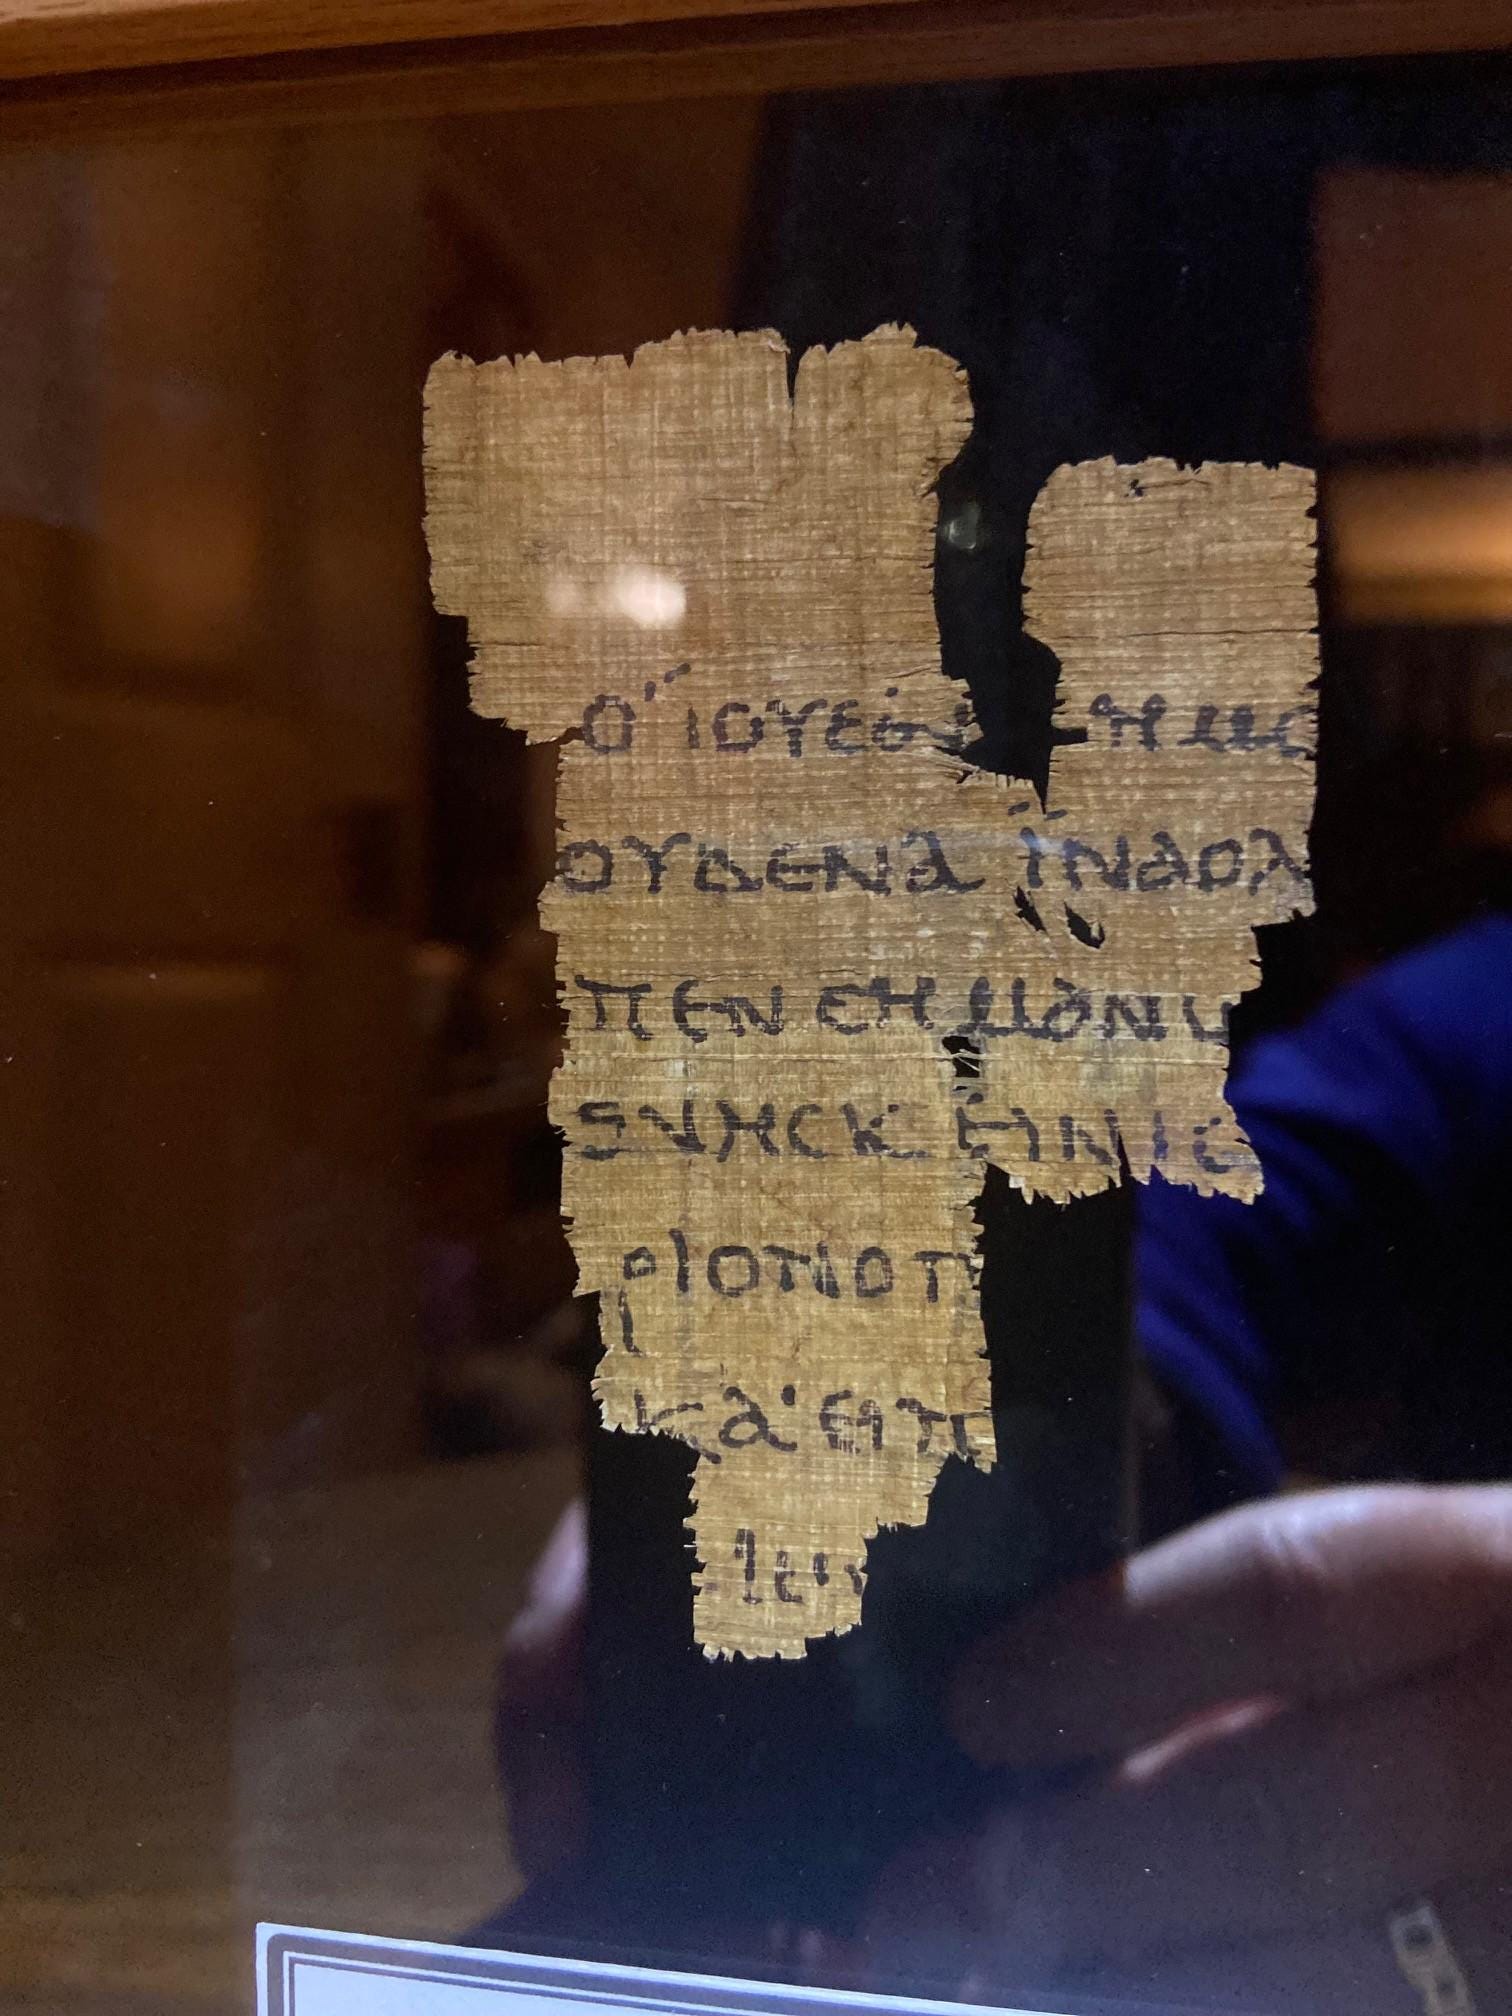 ΟΪ ΙΟΥΔΑΙ ΗΜΕ
ΟΥΔΕΝΑ ΪΝΑ Ο Λ
ΠΕΝ ϹΗΜΑΙΝΩ
ΘΝΗϹΚΕΙΝ ΙϹ
ΡΙΟΝ Ο Π
ΚΑΙ ΕΙΠ